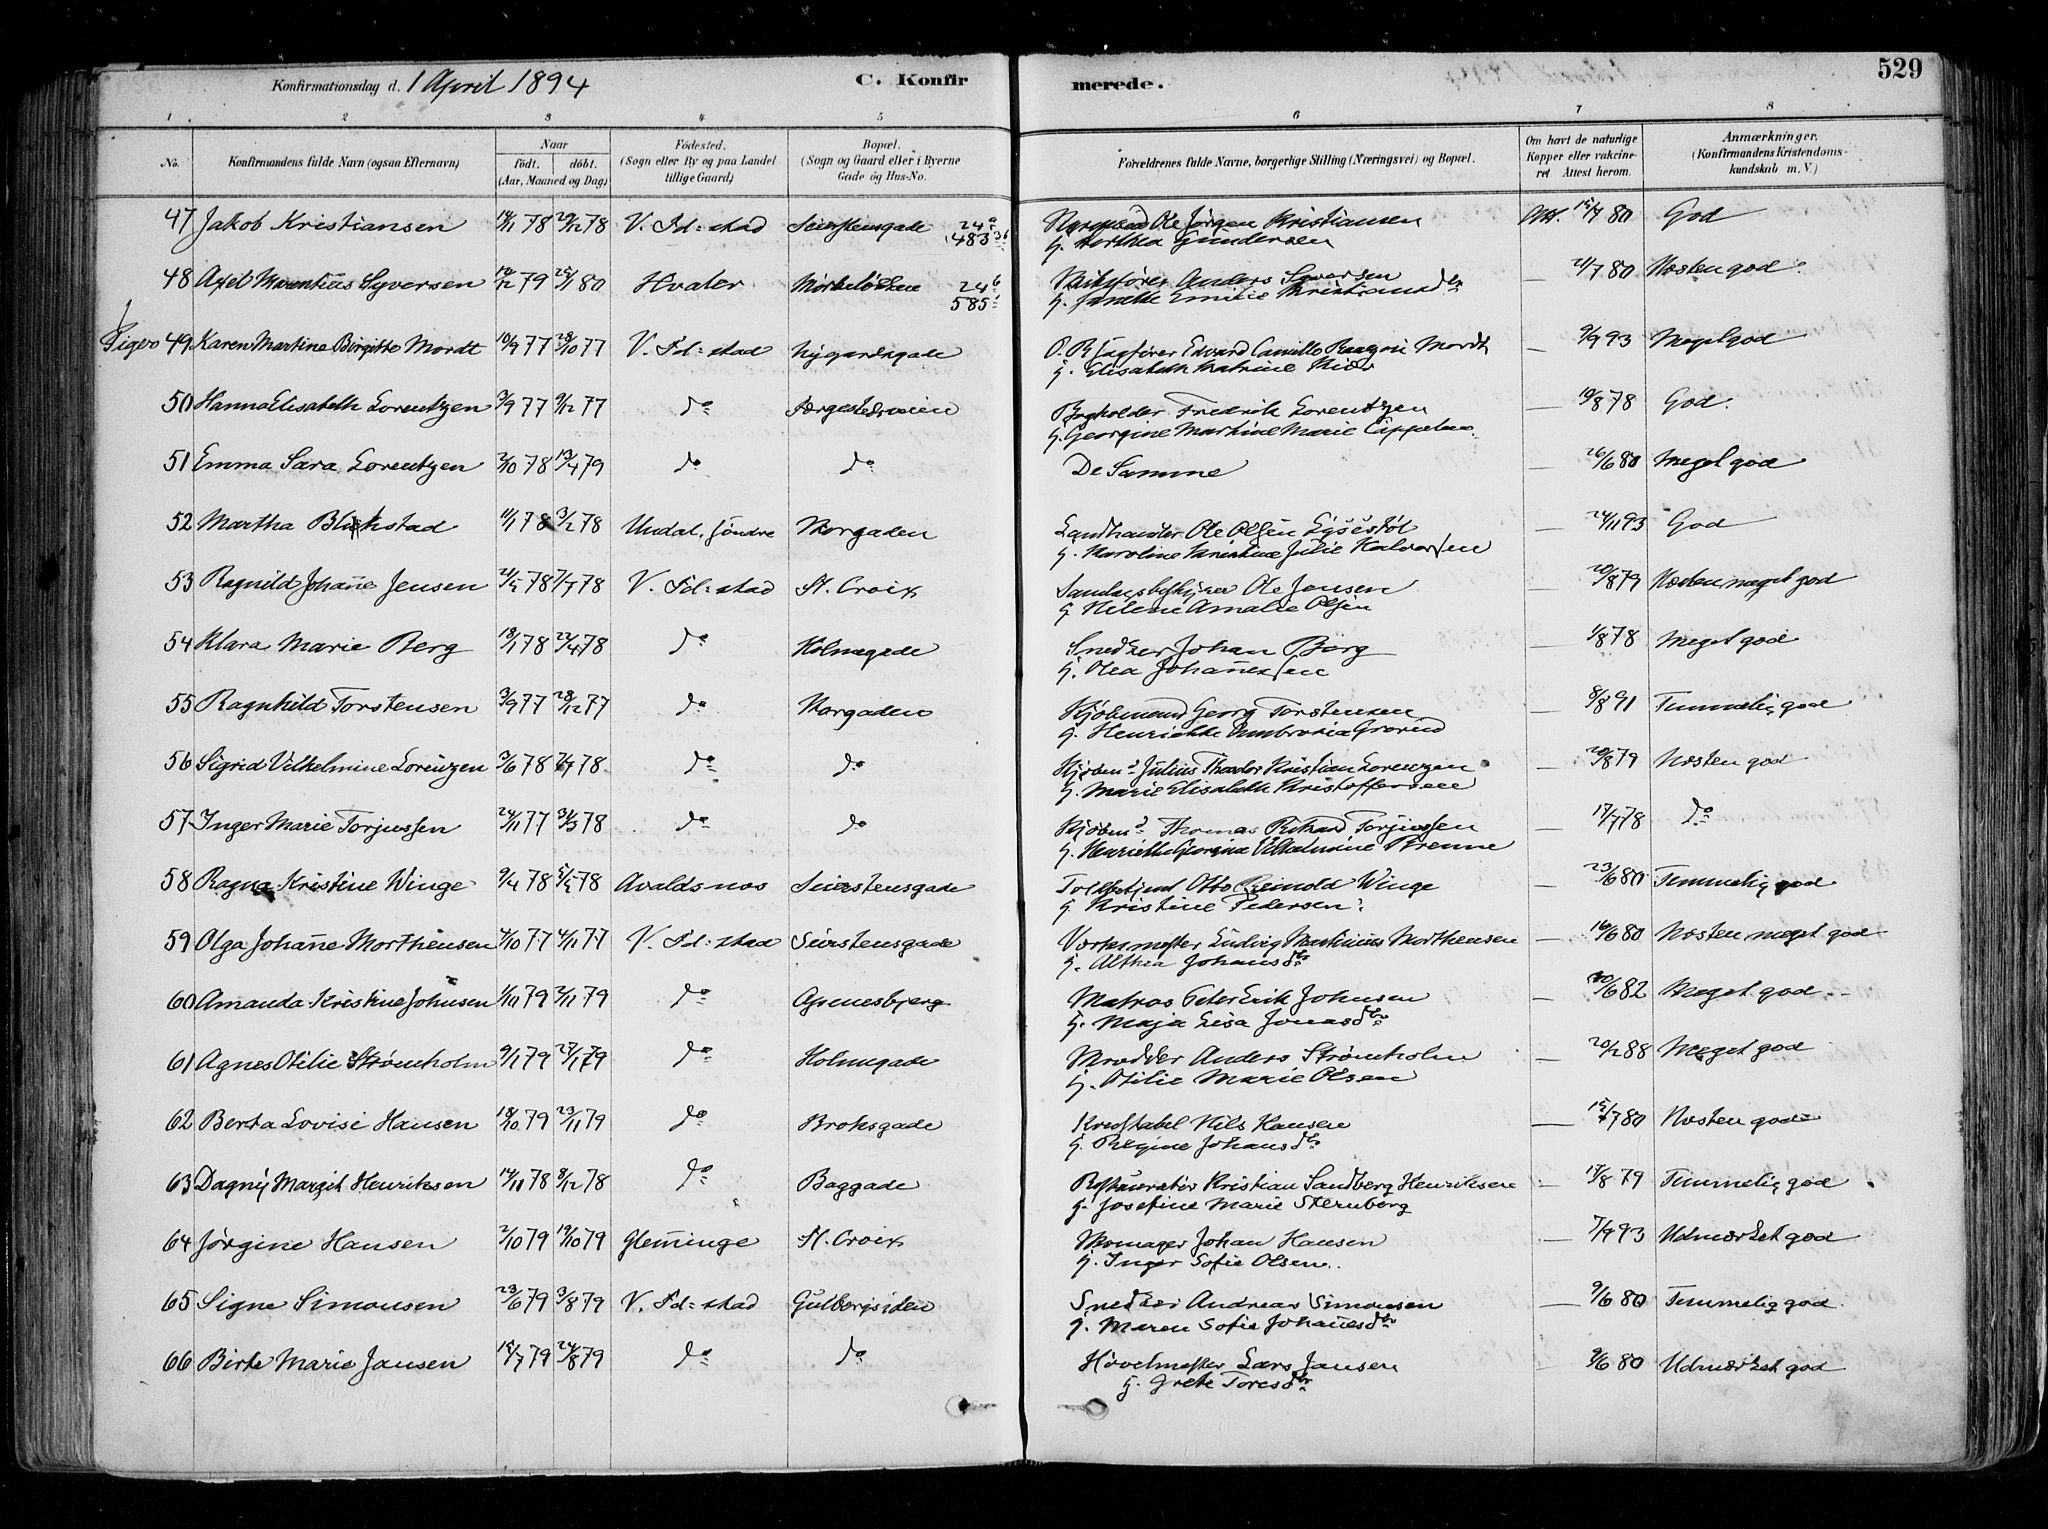 529
Konfirmationsdag d. 1 April 1894 C. Konfirmerede.
1 2 3 4 5 6 7 8
No. Konfirmandens fulde Navn (ogsaa Efternavn) Naar født. døbt. (Aar, Maaned og Dag) Fødested. (Sogn eller By og paa Landet tillige Gaard) Bopæl. (Sogn og Gaard eller i Byerne Gade og Hus-No. Forældrenes fulde Navne, borgerlige Stilling (Næringsvei) og Bopæl. Om havt de naturlige Kopper eller vakcineret. Attest herom. Anmærkninger. (Konfirmandens Kristendomskundskab m. V.)
47 Jakob Kristiansen 78 29/12 78 V. Fd:stad Seierstensgade 24 a 483 Ole Jørgen Kristiansen Att. 15/7 80 God
G. Gundersen
48 Axel Syversen 79 25/1 80 Hvaler 24 b 585 Anders Syversen 21/7 80 Næsten god.
G. Emilie
Piger 49 Karen Martine Birgitte Mordt 10/9 77 28/10 77 V. Fd:stad Nygaardsgade O. R. Sagfører Edvard Camillo Mordt — 9/9 93 Meget god
G. Elisabeth Katrine
50 Hanna Elisabeth Lorentzen 3/9 77 9/12 77 do Færgestedsveien Bogholder Fredrik Lorentzen — 19/8 78 God.
G. Georgine Martine Marie Cappelen
51 Emma Sara Lorentzen 2/10 78 13/4 79 do do De Samme — 26/6 80 Meget god
52 Martha 11/1 78 3/2 78 Undal, søndre Storgaden Landhandler Ole Olsen — 24/11 93 God
G. Karoline Kristine Julie Halvorsen
53 Ragnild Johañe Jensen 21/5 78 7/7 78 V. Fd:stad St. Croix Ole Jensen — 20/8 79 Næsten meget god
G. Helene Amalie Olsen
54 Klara Marie Berg 18/1 78 22/4 78 do Holmegade Snedker Johan Berg — 1/8 78 Meget god
G. Olea Johañessen
55 Ragnhild Torstensen 3/9 77 28/12 77 do Storgaden Kjøbmand Georg Torstensen — 8/8 91 Temmelig god
G. Henriette
56 Sigrid Vilhelmine Lorentzen 3/6 78 7/7 78. do do Kjøbmd Julius Theodor Kristian Lorentzen — 20/8 79 Næsten god
G. Marie Elisabeth Kristoffersen
57 Inger Marie Torjussen 24/11 77 31/3 78 do do Kjøbmd Thomas Torjussen — 17/7 78 do
G. Henriette Georgine Vilhelmine
58 Ragna Kristine Winge 9/4 78 5/5 78 Avaldsnes Seierstensgade Toldbetjent Otto Reinold Winge — 23/6 80 Temmelig god
G. Kristine Pedersen.
59 Olga Johañe Morthensen 7/10 77 4/11 77 V. Fd:stad Seierstensgade Værksmester Ludvig Martinius Morthensen — 16/6 80 Næsten meget god
G. Althea Johansdtr
60 Amanda Kristine Johnsen 1/11 79 2/11 79 do Apenesbjerg Matros Peter Erik Johnsen — 20/6 82 Meget god
G. Maja Lisa Jonasdtr
61 Agnes Otilie Strømholm 9/1 79 27/1 79 do Holmegade Anders Strømholm — 20/2 88 Meget god
G. Otilie Marie Olsen
62 Berta Lovise Hansen 18/10 79 23/11 79 do Brohsgade Konstabel Nils Hansen — 15/7 80 Næsten god
G. Regine Johansdtr
63 Dagny Margit Henriksen 14/11 78 8/12 78 do Baggade Restauratør Kristian Sandberg Henriksen — 15/8 79 Temmelig god
G. Josefine Marie Sternberg
64 Jørgine Hansen 2/10 79 19/10 79 Glem̃inge St. Croix Skomager Johan Hansen — 7/7 93 Udmærket god
G. Inger Sofie Olsen.
65 Signe Simonsen 23/6 79 3/8 79 V. Fd:stad Gulbergsiden Snedker Andreas Simonsen — 9/6 80 Temmelig god
G. Maren Sofie Johañesdtr
66 Birte Marie Jansen 15/7 79 24/8 79 do do Høvelmester Lars Jansen — 9/6 80 Udmærket god
G. Grete Toresdtr